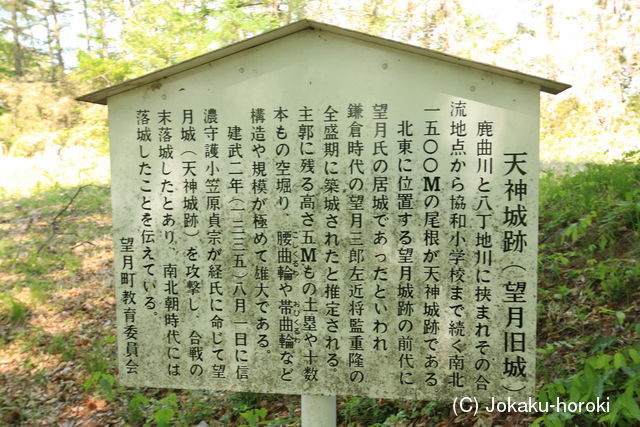 天神城跡（望月旧城）
鹿曲川と八丁地川に挟まれその合
流地点から協和小学校まで続く南北
一五〇〇Mの尾根が天神城跡である
北東に位置する望月城跡の前代に
望月氏の居城であったといわれ、
鎌倉時代の望月三郎左近将監重隆の
全盛期に築城されたと推定される。
主郭に残る高さ五Mもの土塁や十数
本もの空堀り、腰曲輪や帯曲輪など
こしぐるわ
おびくるわ
構造や規模が極めて雄大である。
建武二年（一三三五）八月一日に信
濃守護小笠原貞宗が経氏に命じて望
月城（天神城跡）を攻撃し、合戦の
末落城したとあり、南北朝時代には
落城したことを伝えている。
望月町教育委員会
(C) Jokaku-horoki